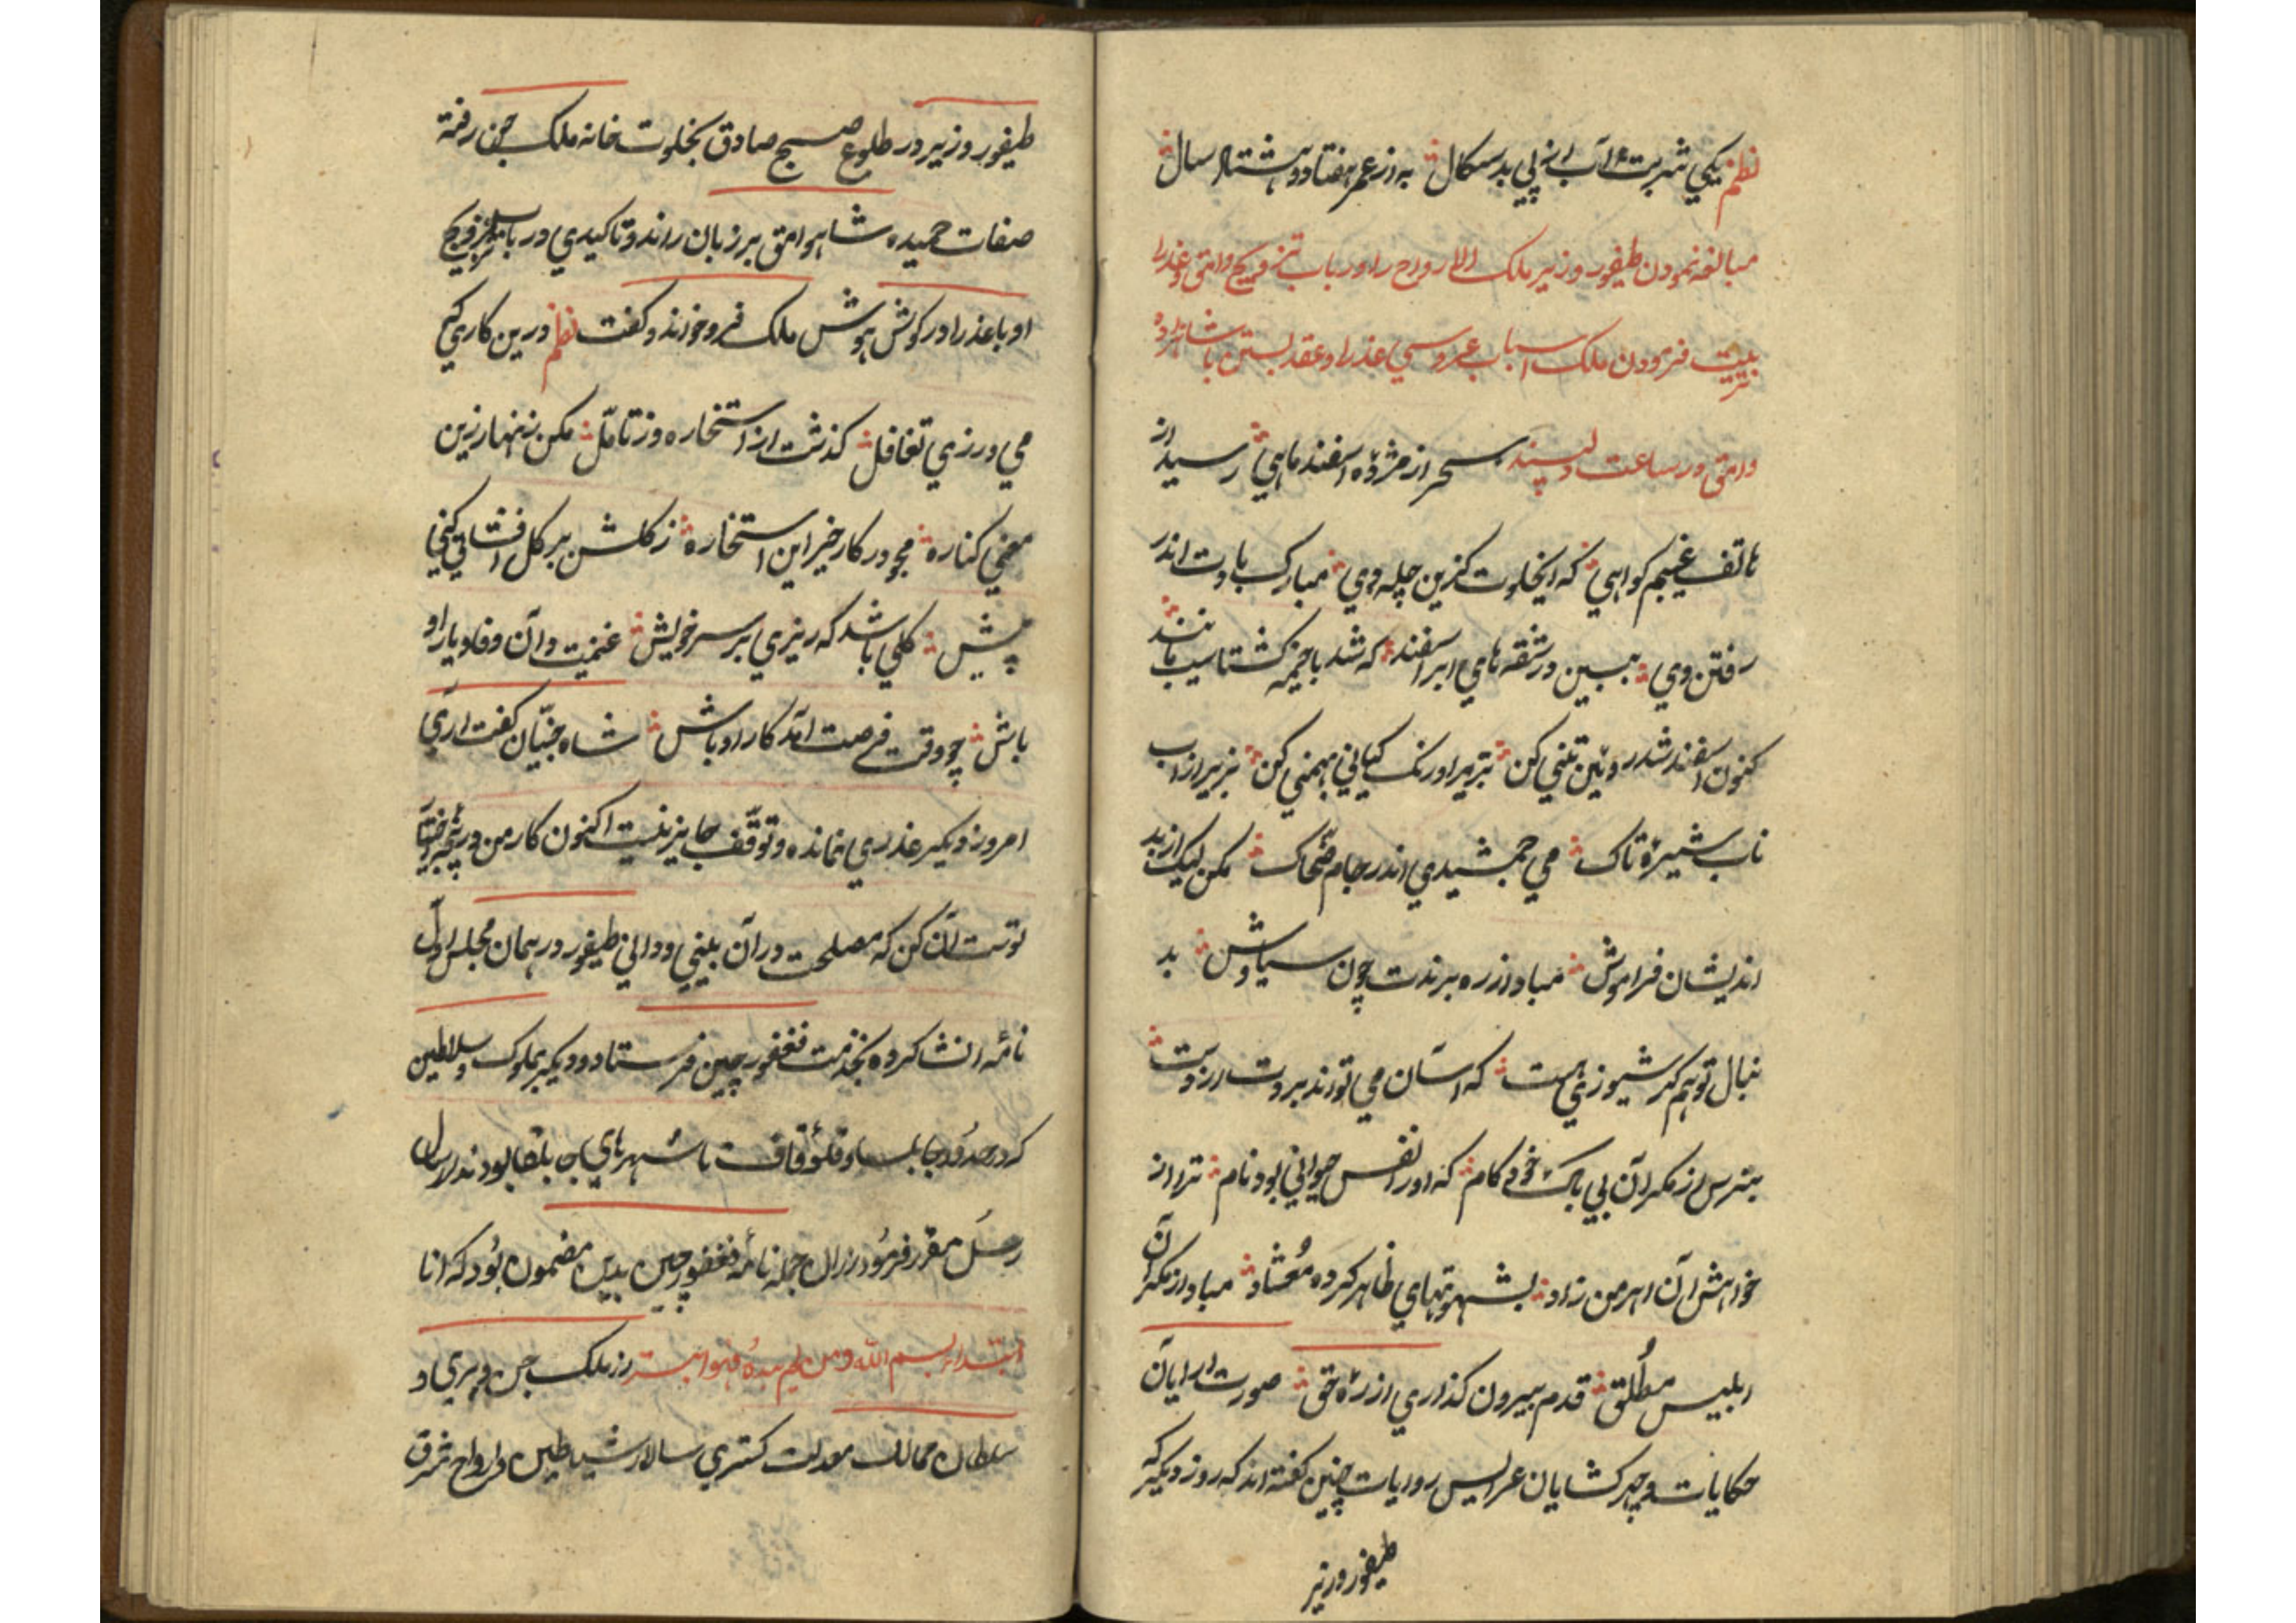 نظم یکي شربت آب از پي بدسکال ∴ به از عمر هفتاد و هشتاد سال ∴
مبالغه نمودن طیفور وزیر ملک الارواح را در باب تزویج وامق و عذرا
ترتیب فرمودن ملک اسباب عروسي عذرا و عقد بستن با شاهزاده
وامق در ساعت دلپسند سحر از مژدۀ اسفند ماهي ∴ رسید از
هاتف غیبم کواهي ∴ که ایخلوت کزین چله دي ∴ مبارک بادت اندر
رفتن وي ∴ ببین در شقه هاي ابر اسفند ∴ که شد با خیمۀ کشتاسب مانند ∴
کنون اسفند شد رویین تني کن ∴ بزیر اورنک کیاني بهمني کن ∴ بریز از آب
ناب شیرۀ تاک ∴ مي جمشیدي اندر جام ضحاک ∴ مکن لیک از بد
اندیشان فراموش ∴ مباد از ره برندت چون سیاوش ∴ بد
نبال تو هم کرسیوزي هست ∴ که آسان مي تواند بردت از دست ∴
بترس از مکر آن بي باک خودکام ∴ که او را نفس حیواني بود نام ∴ ترا از
خواهش آن اهرمن زاد ∴ بشهوتهاي ظاهر کرده معتاد ∴ مباد از مکر آن
ابلیس مطلق ∴ قدم بیرون کذاري از ره حق ∴ صورت آرایان
حکایات و چهر کشایان عرایس روایات چنین کفته اند که روز دیکر که
طیفور وزیر
طیفور وزیر در طلوع صبح صادق بخلوت خانه ملک جن رفته
صفات حمیده شاه وامق بر زبان راند و تاکیدي در باب تزویج
او با عذرا در کوش هوش ملک فرو خواند و کفت نظم درین کاري که
مي ورزي تغافل ∴ کذشت از استخاره وز تامّل ∴ مکن زنهار زین
معني کناره ∴ مجو در کار خیر این استخاره ∴ ز کلشن بر کل افشاني کني
پیش ∴ کلي باشد که ریزي بر سر خویش ∴ غنیمت دان و فادیار او
باش ∴ چو وقت فرصت آمد کار او باش ∴ شاه جنّیان کفت آري
امروز دیکر عذري نمانده و توقّف جایز نیست اکنون کار من در پنجۀ اختیار
توست آن کن که مصلحت در آن بیني و داني طیفور در همان مجلس اوّل
نامۀ انشا کرده بخدمت فغفور چین فرستاد و دیکر بملوک و سلاطین
که در حدود جابلسا و قلۀ قاف تا شهرهاي جابلقا بودند ارسال
رسل مقرر فرمود از آن جمله نامۀ فغفور چین بدین مضمون بود که انا
ابتداء بسم الله و من لم یبده فهو ابتر از ملک جن و پري و
سلطان ممالک معدلت کستري سالار شیاطین و ارواح شرق